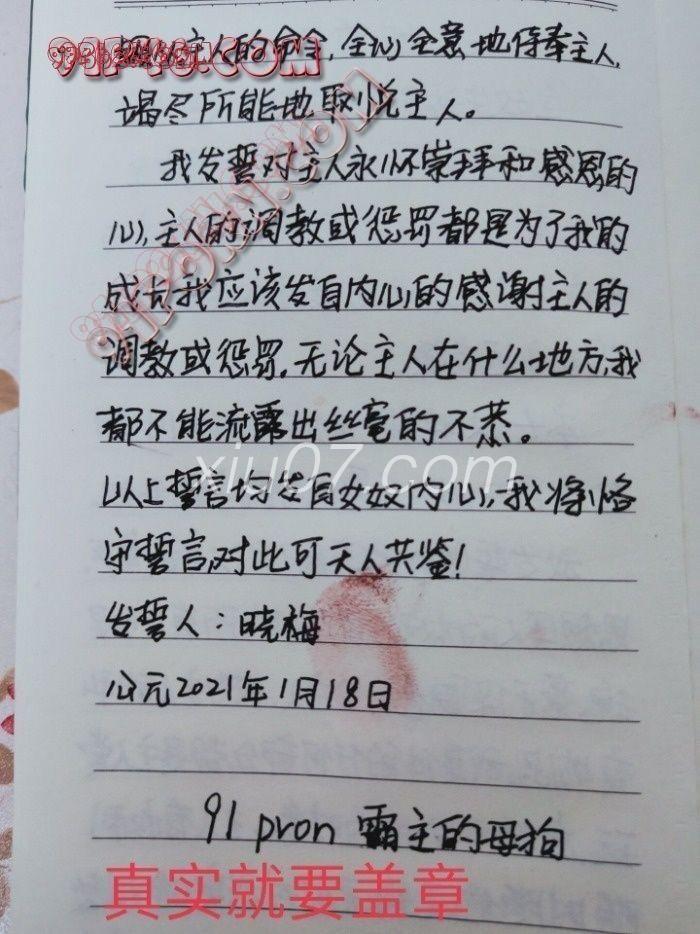 91P48.COM
照从主人的命令,全心全意地侍奉主人,
竭尽所能地取悦主人。
我发誓对主人永怀崇拜和感恩的
心,主人的调教或惩罚都是为了我的
成长我应该发自内心的感谢主人的
调教或惩罚,无论主人在什么地方,我
都不能流露出丝毫的不恭。
xiu07.com
以上誓言均发自女奴内心,我将恪
守誓言,对此可天人共鉴!
发誓人:晓梅
公元2021年1月18日
91 pron 霸主的母狗
真实就要盖章